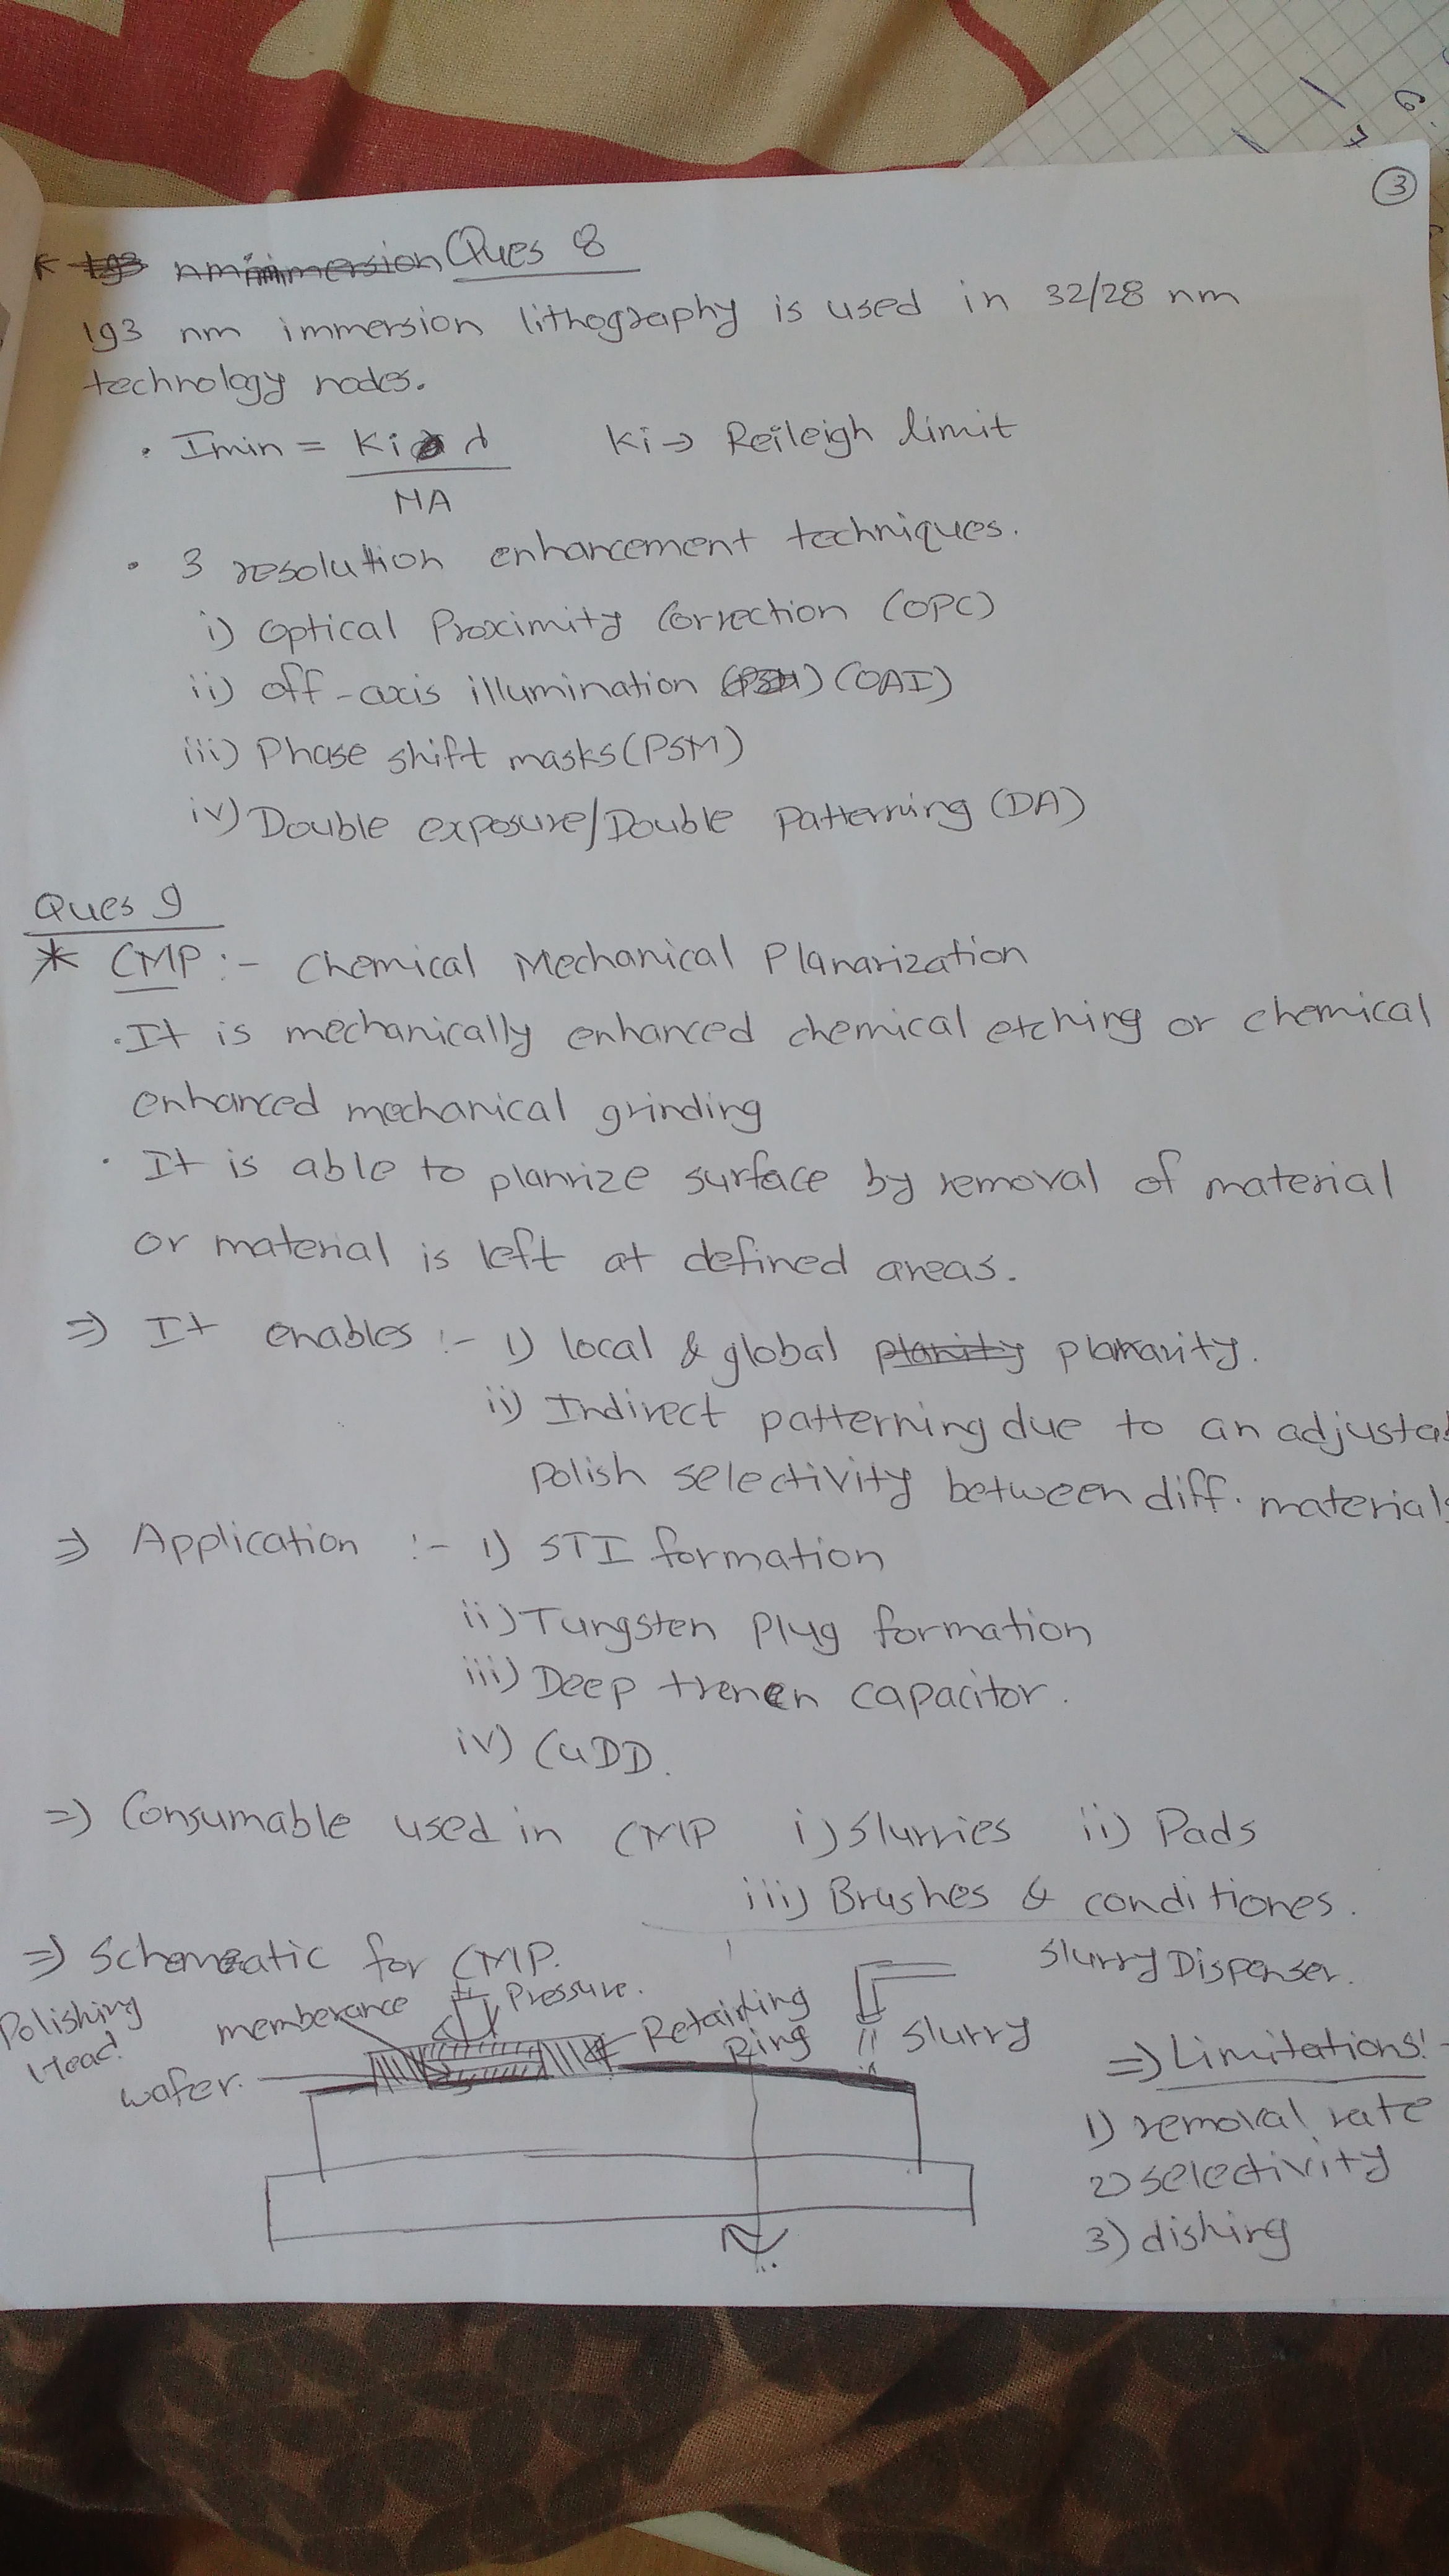 3
Ques 8
193 nm immersion lithography is used in 32/28 nm
technology nodes.
· Imin = Ki λ Ki → Reileigh limit
NA
· 3 resolution enhancement techniques.
i) Optical Proximity Correction (OPC)
ii) off-axis illumination (OAI)
iii) Phase shift masks (PSM)
iv) Double exposure/Double Patterning (DA)
Ques 9
* CMP :- Chemical Mechanical Planarization
· It is mechanically enhanced chemical etching or chemical
enhanced mechanical grinding
· It is able to planrize surface by removal of material
or material is left at defined areas.
⇒ It enables :- i) local & global planarity.
ii) Indirect patterning due to an adjusta
polish selectivity between diff. materials
⇒ Application :- i) STI formation
ii) Tungsten Plug formation
iii) Deep trench capacitor.
iv) CuDD.
⇒ Consumable used in CMP i) Slurries ii) Pads
iii) Brushes & conditiones.
⇒ Schematic for CMP.
Slurry Dispenser.
Polishing Head
memberance
Pressure.
Retaining Ring
Slurry
wafer.
⇒ Limitations:-
1) removal rate
2) selectivity
3) dishing